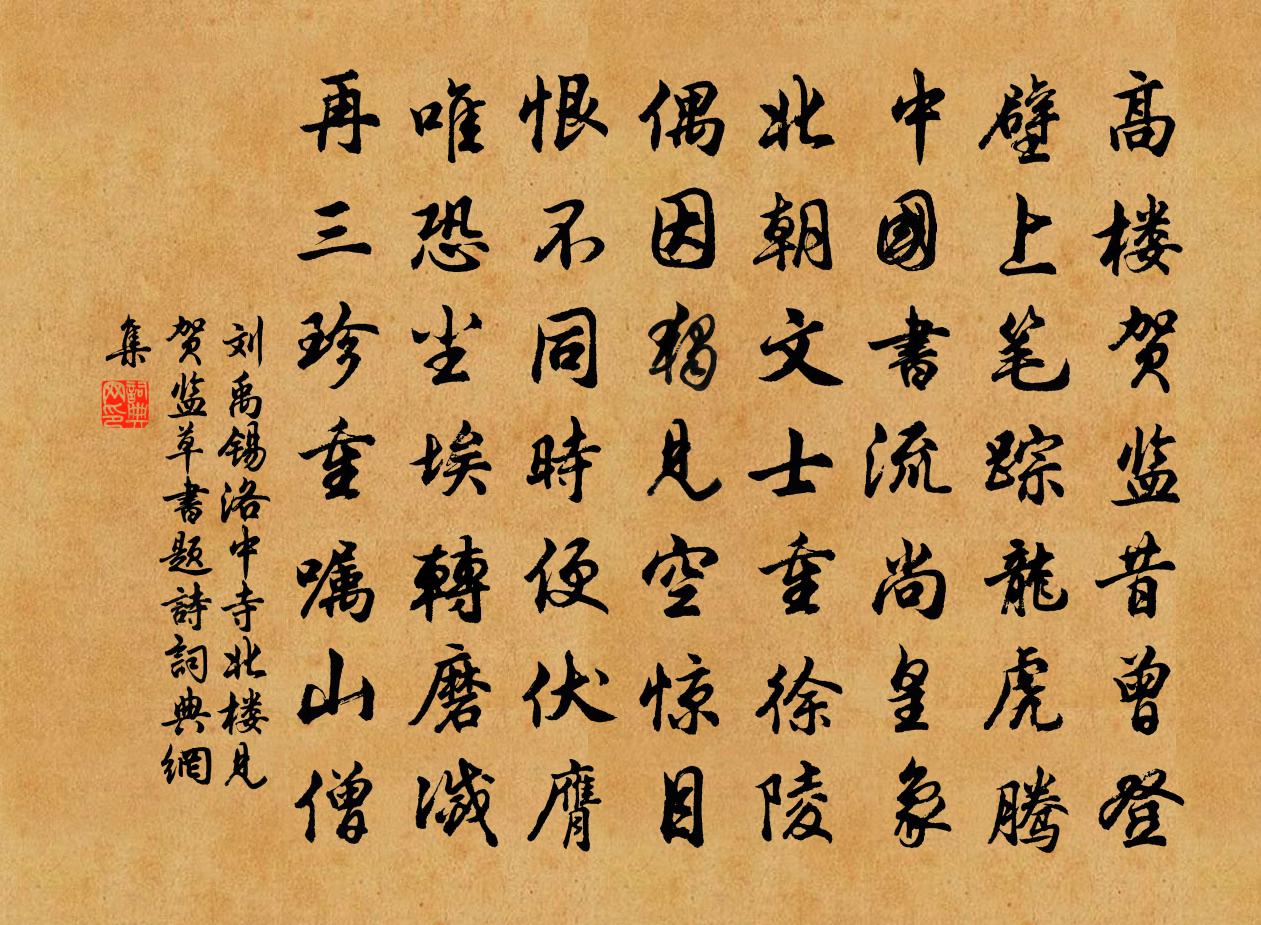 高楼贺监昔曾登
壁上笔踪龍虎腾
中國書流尚皇象
北朝文士重徐陵
偶因独見空惊目
恨不同時便伏膺
唯恐尘埃轉磨滅
再三珍重嘱山僧
刘禹锡洛中寺北楼見
贺监草書题詩詞典網
集
詞典
网印